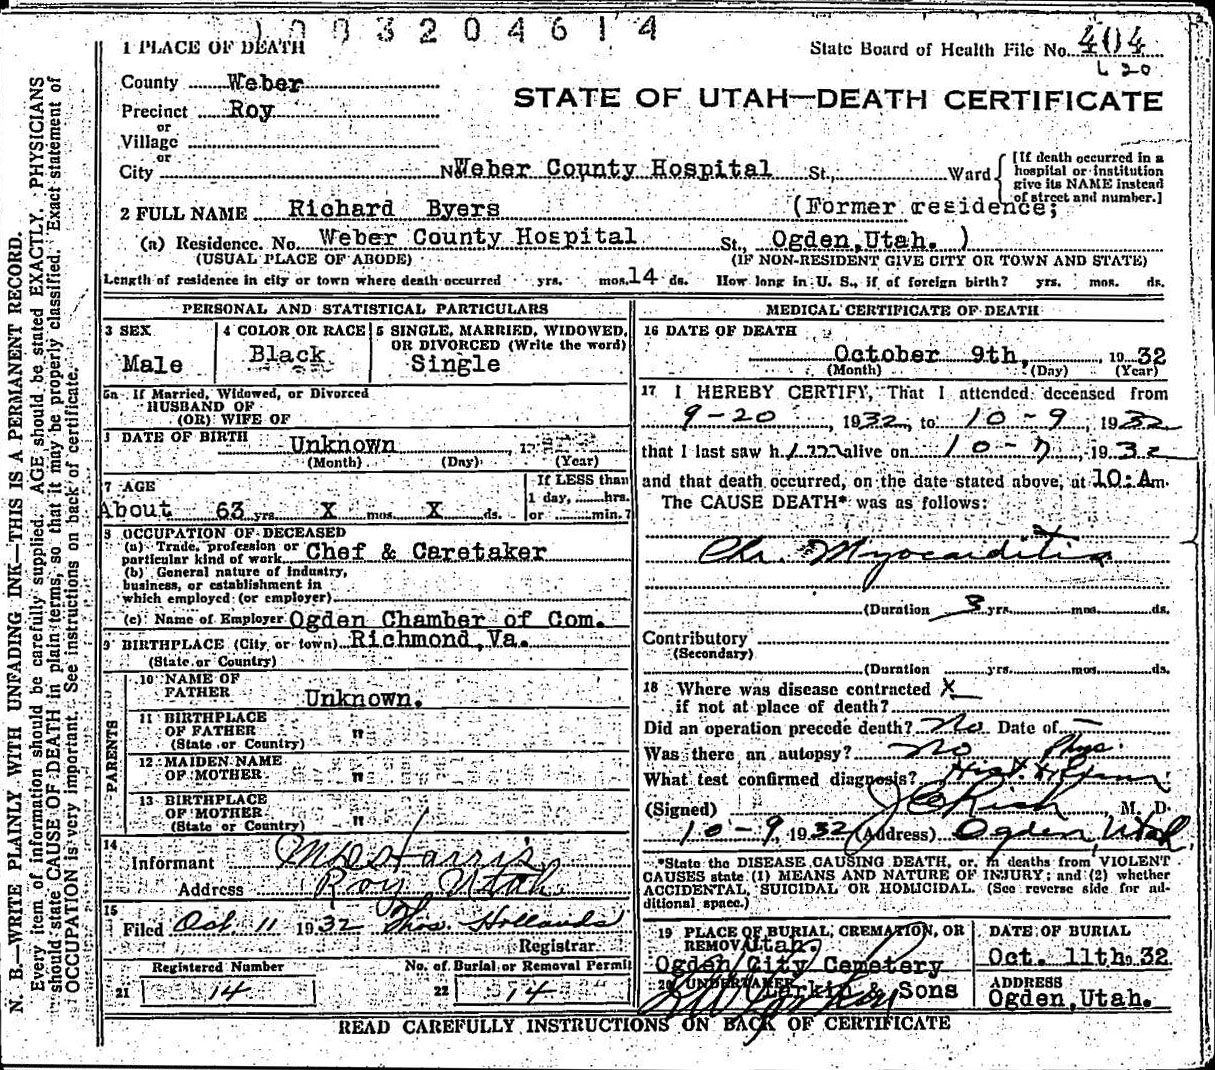 1003204614
1 PLACE OF DEATH
State Board of Health File No. 404
County Weber
620
Precinct Roy
STATE OF UTAH—DEATH CERTIFICATE
or
Village
or
City
N Weber County Hospital St., Ward
[If death occurred in a
hospital or institution
give its NAME instead
of street and number.]
2 FULL NAME Richard Byers (Former residence;
(a) Residence. No. Weber County Hospital St., Ogden, Utah. )
(USUAL PLACE OF ABODE) (IF NON-RESIDENT GIVE CITY OR TOWN AND STATE)
Length of residence in city or town where death occurred yrs. mos. 14 ds. How long in U. S., if of foreign birth? yrs. mos. ds.
PERSONAL AND STATISTICAL PARTICULARS
3 SEX
Male
4 COLOR OR RACE
Black
5 SINGLE, MARRIED, WIDOWED,
OR DIVORCED (Write the word)
Single
5a If Married, Widowed, or Divorced
HUSBAND OF
(OR) WIFE OF
DATE OF BIRTH Unknown
(Month) (Day) (Year)
7 AGE
About 63 yrs. X mos. X ds.
If LESS than
1 day, ......hrs.
or ......min.?
8 OCCUPATION OF DECEASED
(a) Trade, profession or
particular kind of work Chef & Caretaker
(b) General nature of Industry,
business, or establishment in
which employed (or employer)
(c) Name of Employer Ogden Chamber of Com.
9 BIRTHPLACE (City or town) Richmond, Va.
(State or Country)
PARENTS
10 NAME OF
FATHER Unknown.
11 BIRTHPLACE
OF FATHER "
(State or Country)
12 MAIDEN NAME
OF MOTHER "
13 BIRTHPLACE
OF MOTHER "
(State or Country)
14
Informant Harris
Address Roy Utah.
15
Filed Oct. 11 1932 Thos. Hollands
Registrar
Registered Number
21 14
No. of Burial or Removal Permit
22 14
MEDICAL CERTIFICATE OF DEATH
16 DATE OF DEATH
October 9th, 1932
(Month) (Day) (Year)
17 I HEREBY CERTIFY, That I attended deceased from
9-20, 1932, to 10-9, 1932
that I last saw him alive on 10-7, 1932
and that death occurred, on the date stated above, at 10:A m.
The CAUSE DEATH* was as follows:
Chr. Myocarditis
(Duration 3 yrs. mos. ds.
Contributory
(Secondary)
(Duration yrs. mos. ds.
18 Where was disease contracted X
if not at place of death?
Did an operation precede death? No Date of —
Was there an autopsy? No Phys.
What test confirmed diagnosis? Hist. &
(Signed) Rich M. D.
10-9, 1932 (Address) Ogden, Utah
*State the DISEASE CAUSING DEATH, or, in deaths from VIOLENT
CAUSES state (1) MEANS AND NATURE OF INJURY; and (2) whether
ACCIDENTAL, SUICIDAL OR HOMICIDAL. (See reverse side for ad-
ditional space.)
19 PLACE OF BURIAL, CREMATION, OR
REMOVAL Utah.
Ogden City Cemetery
DATE OF BURIAL
Oct. 11th 1932
20 UNDERTAKER
Larkin & Sons
ADDRESS
Ogden, Utah.
READ CAREFULLY INSTRUCTIONS ON BACK OF CERTIFICATE
N. B.—WRITE PLAINLY WITH UNFADING INK—THIS IS A PERMANENT RECORD.
Every item of information should be carefully supplied. AGE should be stated EXACTLY. PHYSICIANS
should state CAUSE OF DEATH in plain terms, so that it may be properly classified. Exact statement of
OCCUPATION is very important. See instructions on back of certificate.